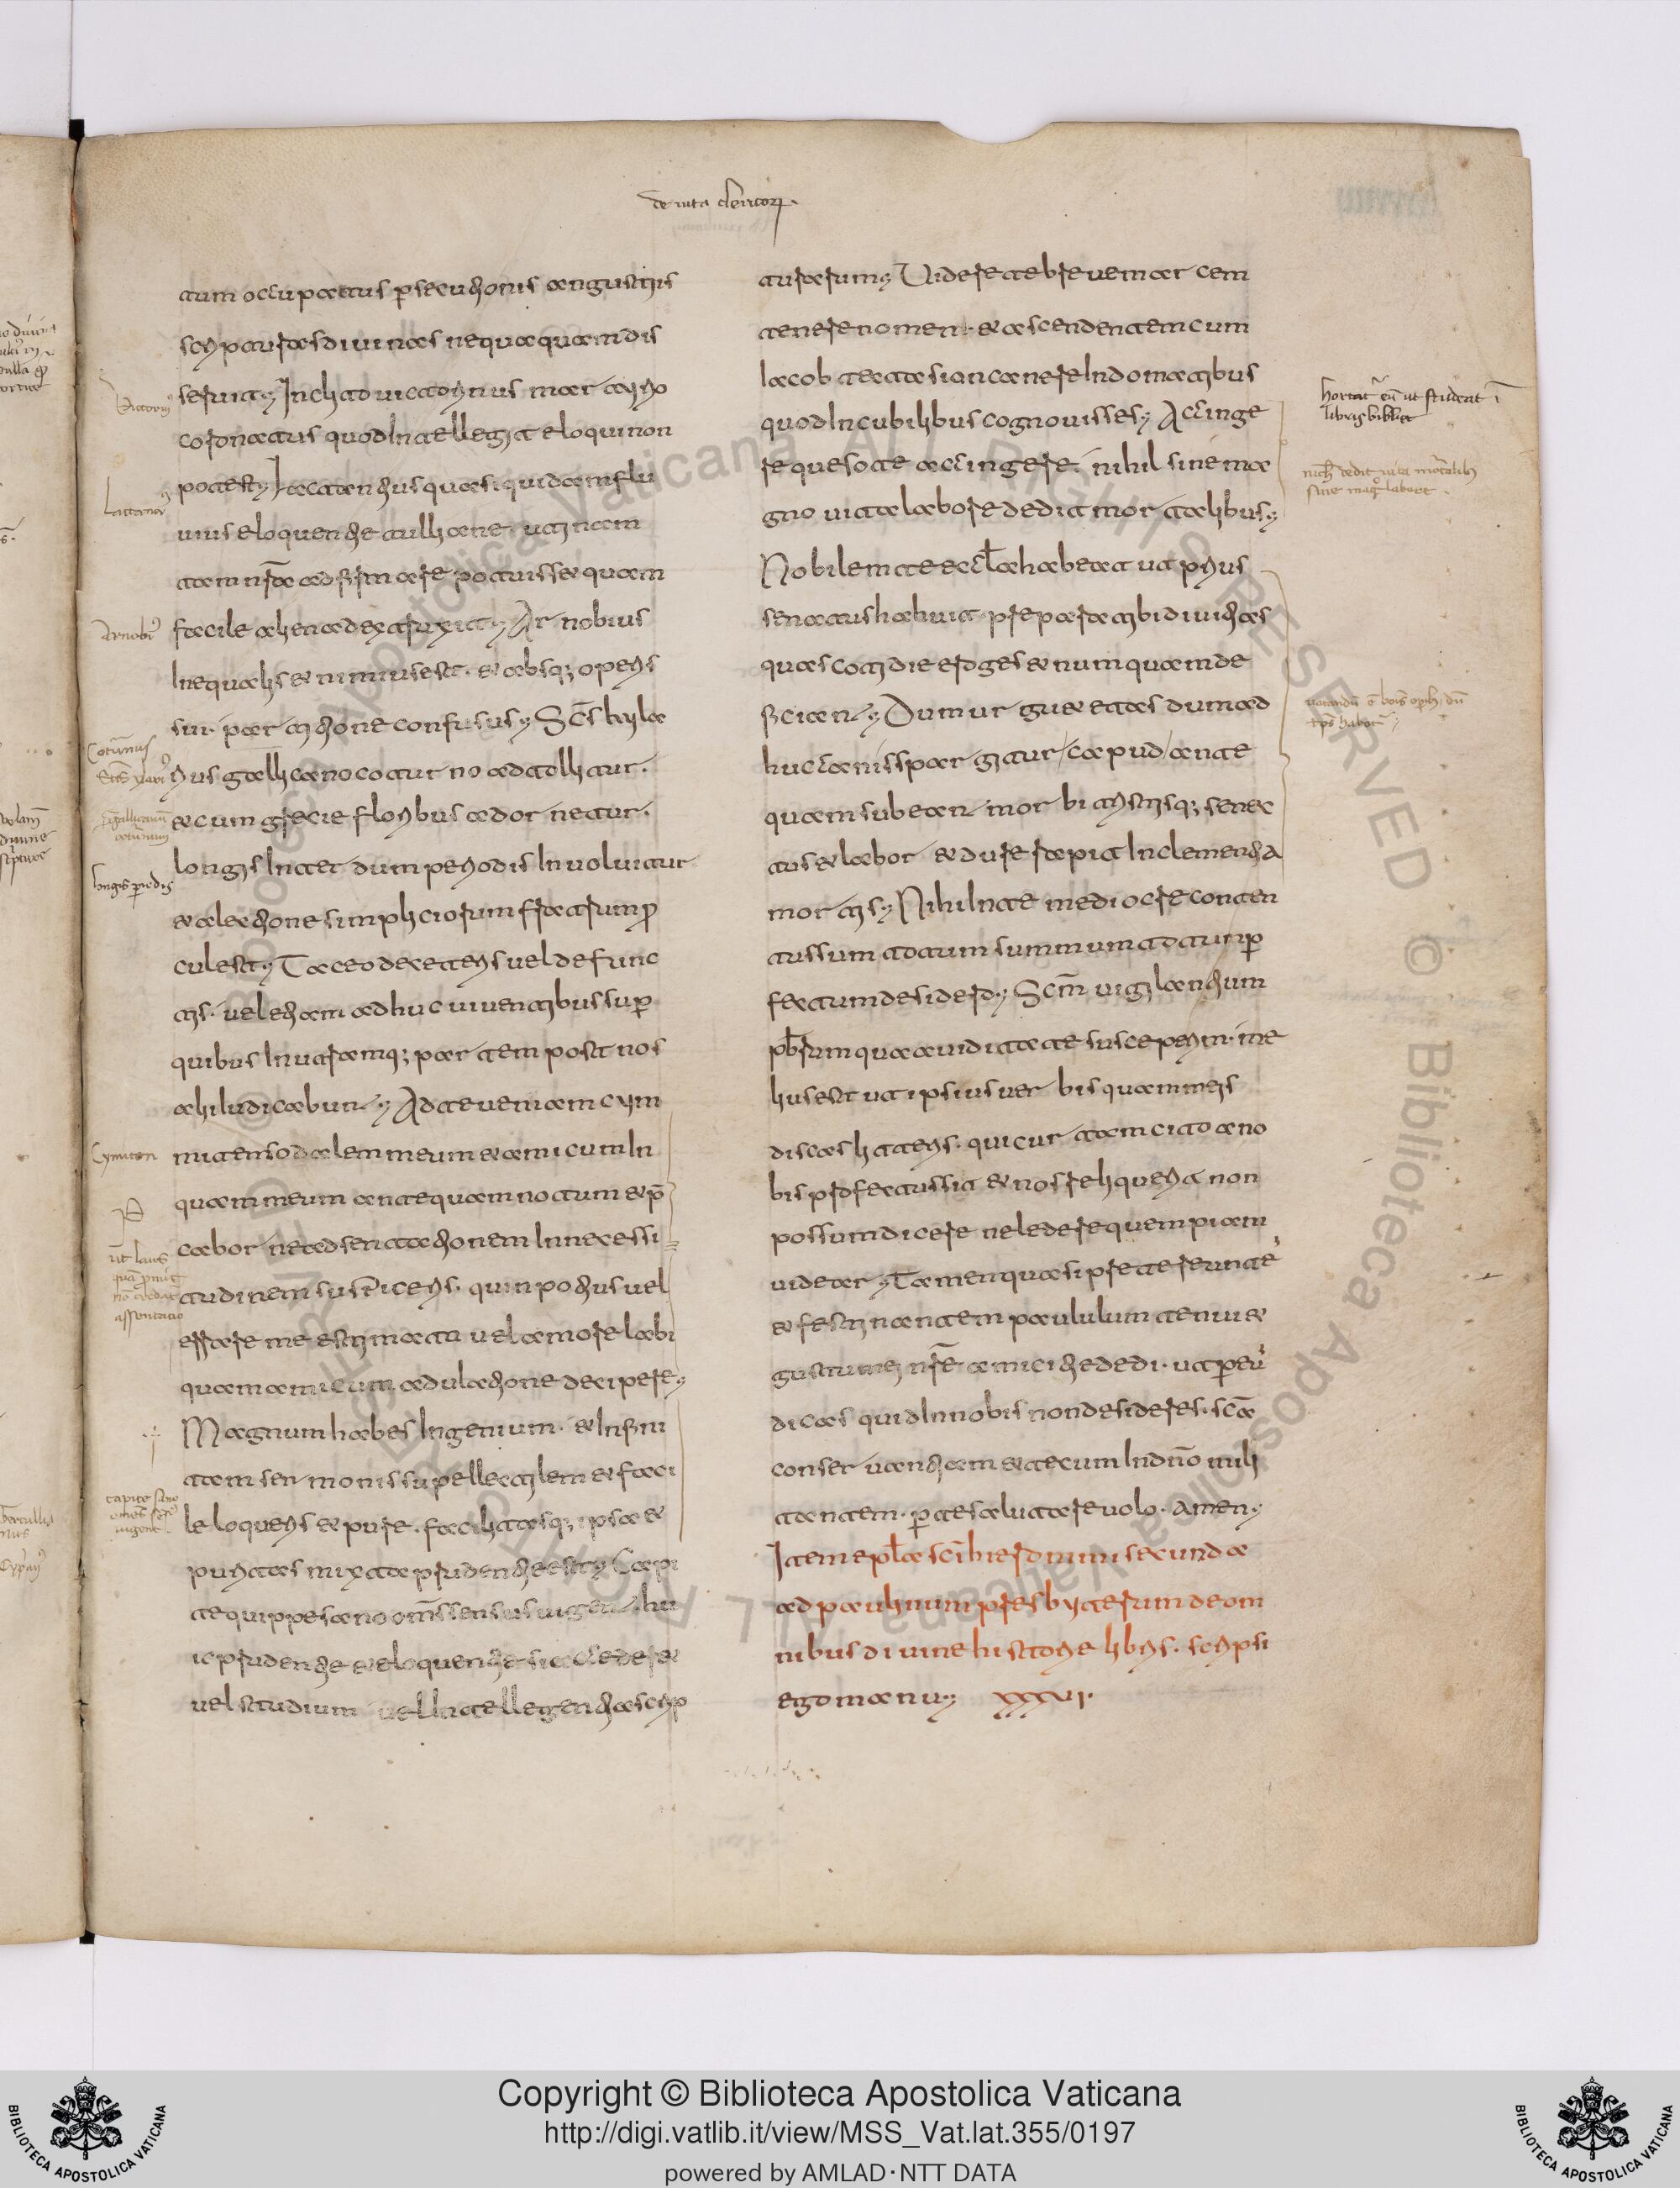 de uita clericorum.
tum occupatus persecutionis angustiis
scripturas diuinas nequaquam dis
seruit; Inclito uictorinus martyrio
coronatus quod Intellegit eloqui non
potest; Lactantius quasi quidam flu
uius eloquentie tulliane. utinam
tam nostra adfirmare potuisset quam
facile aliena dextruxit; Arnobius
Inequalis et nimius est. et absque operis
sui partitione confusus; Scs hyla
rius gallicano coturno adtollitur.
et cum grecie floribus adornetur.
longis Interdum periodis Inuoluitur
et a lectione simpliciorum fratrum pro
cul est; Taceo de ceteris uel defunc
tis. uel etiam adhuc uiuentibus super
quibus In utramque partem post nos
alii Iudicabunt; Ad te ueniam cym
mitem sodalem meum et amicum In
quam meum antequam notum et p̄
cabor ne adsentationem In necessi
tudinem suspiceris. quin potius uel
errare me estimato uel amore labi
quam amicum adulatione decipere;
Magnum habes Ingenium. et Infini
tam sermonis suppellectilem et faci
le loqueris et pure. facilitasque ipsa et
puritas mixta prudentie est; Capi
te quippe sano oms sensus uigent. hu
ic prudentie et eloquentie si accederet
uel studium uel Intellegentia scrip
turarum; Uidere te breui emarcem
tenere nomen. et ascendentem cum
Iacob tecta sion canere In domatibus
quod In cubilibus cognouisses; Accinge
re queso te accingere. nihil sine ma
gno uita labore dedit mortalibus;
Nobilem te eccla habeat ut prius
senatus habuit. prepara tibi diuitias
quas cotidie eroges et numquam de
ficiant; Dum urguet etas dum ad
huc canis spargitur caput ante
quam subeant morbi tristisque senec
tus et labor et dure rapit Inclementia
mortis; Nihil In te mediocre conten
tus sum totum summum totum per
fectum desidero; Scm uigilantium
pbrum qua auiditate susceperim. me
lius est ut ipsius uerbis quam meis
discas litteris. qui cur tam cito a no
bis profectus sit et nos reliquerit non
possum dicere ne ledere quempiam
uidear; Tamen quasi pretereuntem
et festinantem paululum tenui et
gustum ei nostre amicitie dedi. ut per eum
dicas quid In nobis non desideres. scam
conseruantiam et tecum In dno mili
tantem. per te salutare uolo. Amen;
Item epla sci hieronimi secunda
ad paulinum presbyterum de om
nibus diuine historie libris. scripsi
ego manu; xxxvi.
Victorinus
Lactantius
Arnobius
Coturnus
longis periodis
Cymiten
assentatio
capite sano
omnes sensus
uigent.
hortatur eum ut studeat in
libris bibliae
nichil dedit uita mortalibus
sine magno labore.